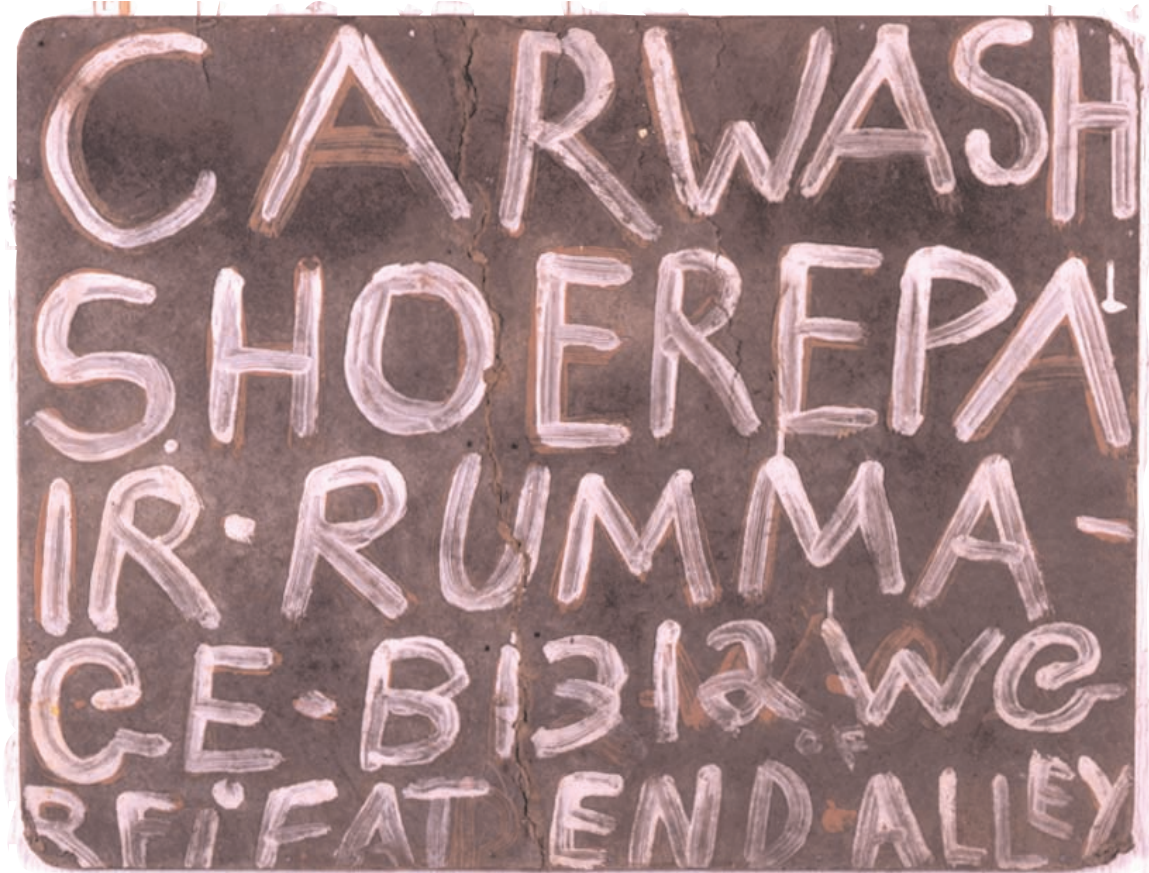 CARWASH
SHOEREPA
IR·RUMMA-
GE·B1312 We
OF
END ALLEY